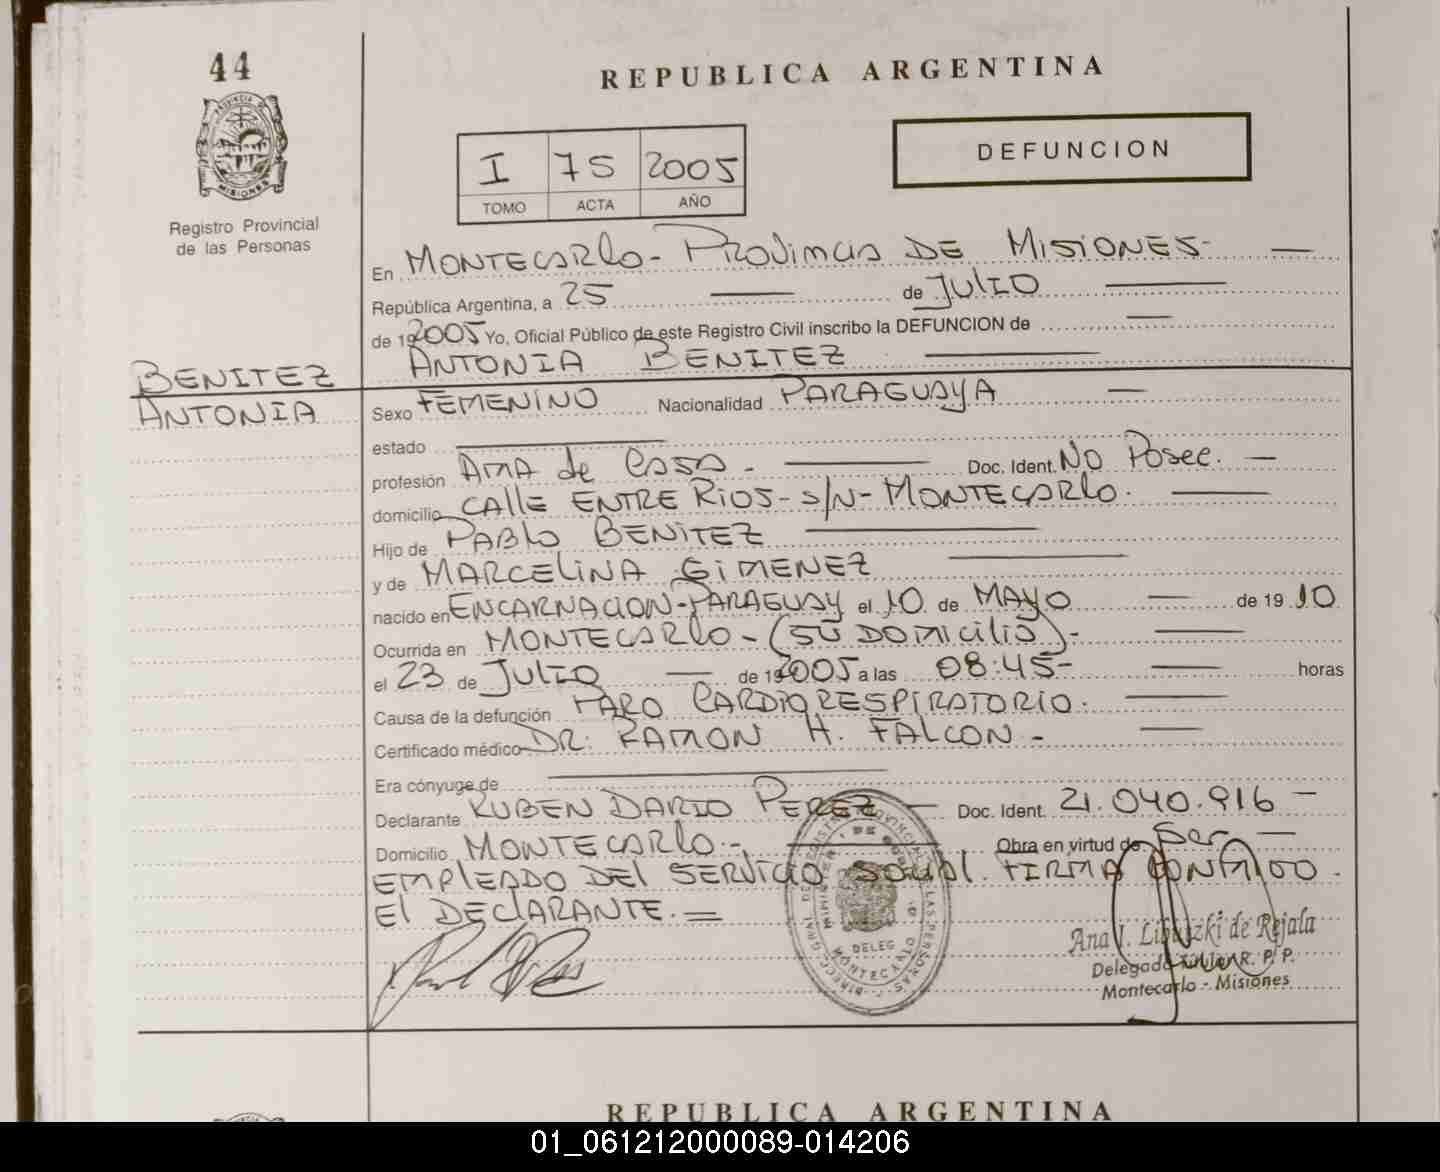 44
REPUBLICA ARGENTINA
PROVINCIA DE
MISIONES
Registro Provincial
de las Personas
I 75 2005
TOMO ACTA AÑO
DEFUNCION
En MONTECARLO - PROVINCIA DE MISIONES-
República Argentina, a 25 de JULIO
de 192005 Yo, Oficial Público de este Registro Civil inscribo la DEFUNCION de
ANTONIA BENITEZ
BENITEZ
ANTONIA
Sexo FEMENINO Nacionalidad PARAGUAYA
estado
profesión AMA de CASA - Doc. Ident. No Posee.
domicilio CALLE ENTRE RIOS - S/N - MONTECARLO.
Hijo de PABLO BENITEZ
y de MARCELINA GIMENEZ
nacido en ENCARNACION - PARAGUAY el 10 de MAYO de 19 10
Ocurrida en MONTECARLO - (SU DOMICILIO) -
el 23 de JULIO de 192005 a las 08:45- horas
Causa de la defunción PARO CARDIORESPIRATORIO.
Certificado médico DR. RAMON H. FALCON -
Era cónyuge de
Declarante RUBEN DARIO PEREZ Doc. Ident. 21.040.916 -
Domicilio MONTECARLO -, Obra en virtud de Ser
EMPLEADO DEL SERVICIO SOCIAL. FIRMA CONMIGO
El DECLARANTE. =
DELEG
MONTECARLO
Ana I. de Rejala
Delegada Titular R. P. P.
Montecarlo - Misiones
REPUBLICA ARGENTINA
01_061212000089-014206